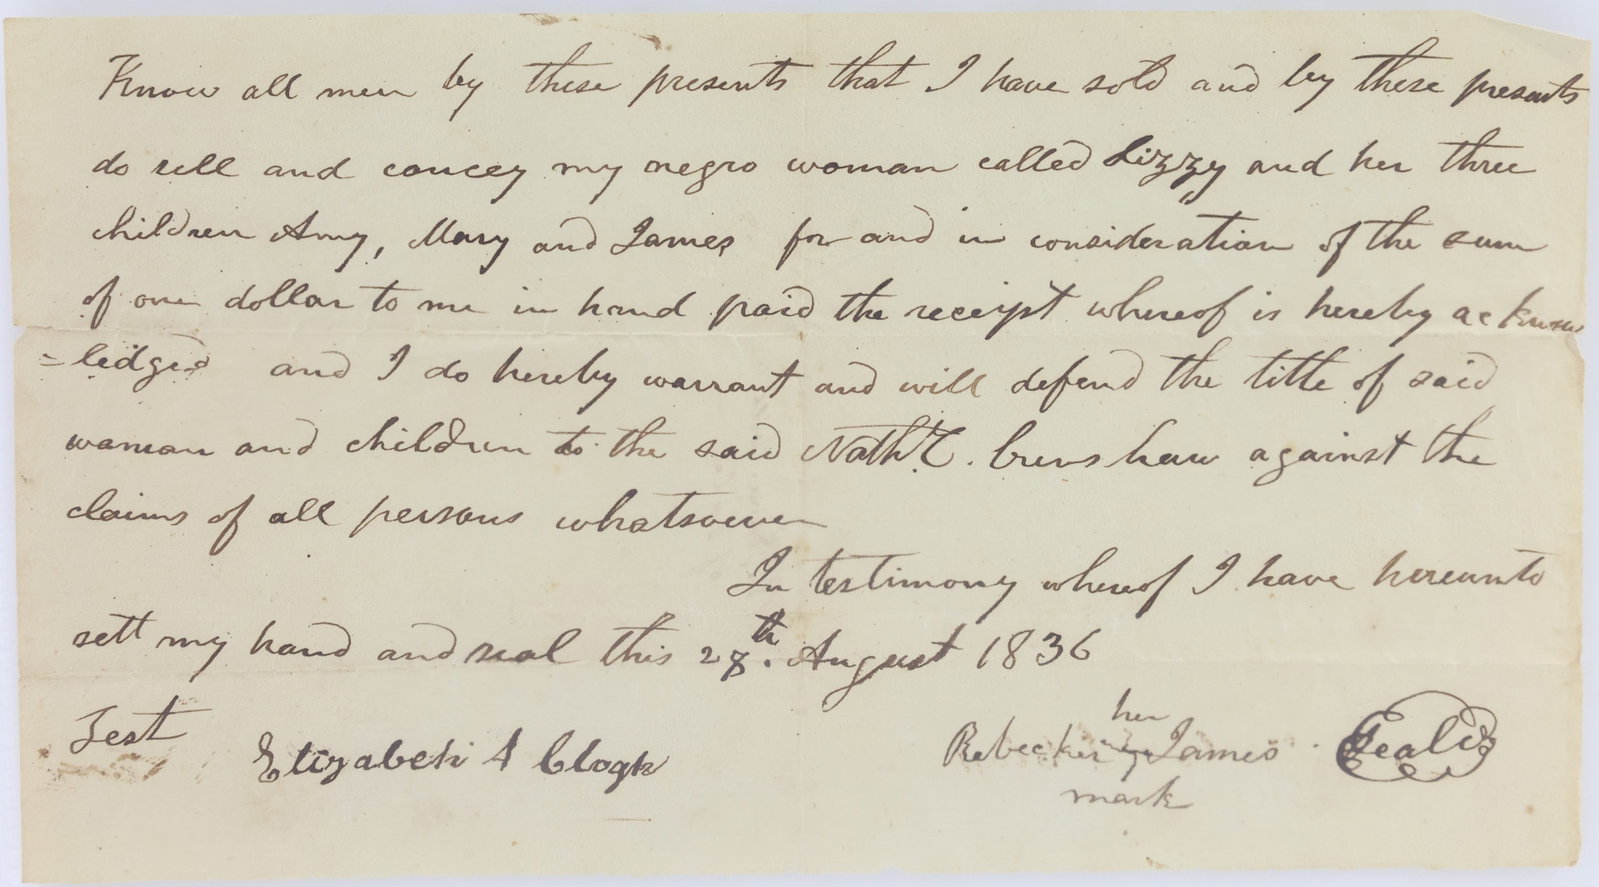 Know all men by these presents that I have sold and by these presents
do sell and convey my negro woman called Lizzy and her three
children Amy, Mary and James for and in consideration of the sum
of one dollar to me in hand paid the receipt whereof is hereby acknow
=ledged and I do hereby warrant and will defend the title of said
woman and children to the said Nath. C. Crenshaw against the
claims of all persons whatsoever
In testimony whereof I have hereunto
sett my hand and seal this 28th. August 1836
Test
her
Elizabeth A Clogh
Rebecker James Seal
mark